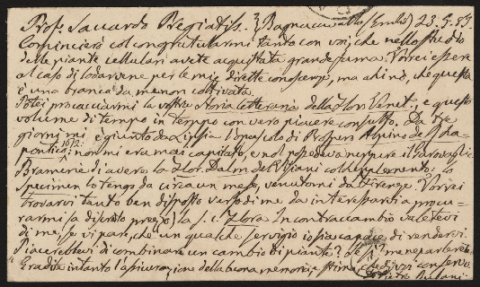 Prof. Saccardo Pregiatiss. Bagnacavallo (Emilia) 23.5.89
Comincierò col congratularmi tanto con voi, che nello studio
delle piante cellulari avete acquistata grande fama. Vorrei essere
al caso di lodarvene per le mie dirette conoscenze, ma ahimè, che questa
è una branca da me non coltivata.
Potei procacciarmi la vostra Storia letteraria della Flor. Venet., e questo
volume di tempo in tempo con vero piacere consulto. Da tre
giorni mi è giunto da Lipsia l'opuscolo di Prospero Alpino de Rha-
pontico 1612: non mi era mai capitato, e nol possedeva neppure il
Bramerei di avere la Flor. Dalm. del Visiani col supplemento: lo
Specimen lo tengo da circa un mese, venutomi da Firenze. Vorrei
trovarvi tanto ben disposto verso di me da in tempo procu-
rarmi (a discreto prezzo) la s. c. Flora. In contraccambio valetevi
di me, se vi pare, che un qualche servigio io sia capace di rendervi.
Piacerebbevi di combinare un cambio di piante? Se sì me ne parlerete.
Gradite intanto l'assicurazione della buona memoria, e stima, che di voi conserva
Pietro Bubani